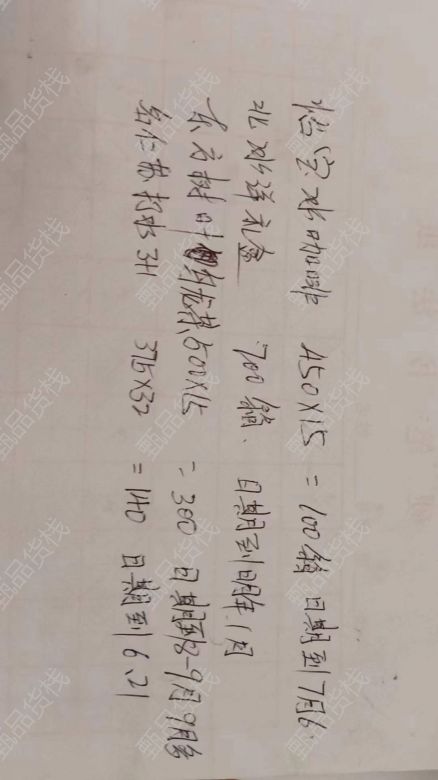 怡宝水咖啡 450×15 = 100箱 日期到7月6.
北冰洋礼盒 700箱、日期到明年1月
东方树叶 500×15 = 300 日期到8-9月
苏打水 375×32 = 140 日期到6.21
甄品货栈